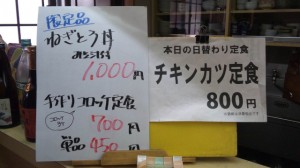 限定品
ねぎとろ丼
みそ汁付
1,000円
手作りコロッケ定食
コロッケ
700円
単品 450円
本日の日替わり定食
チキンカツ定食
800円